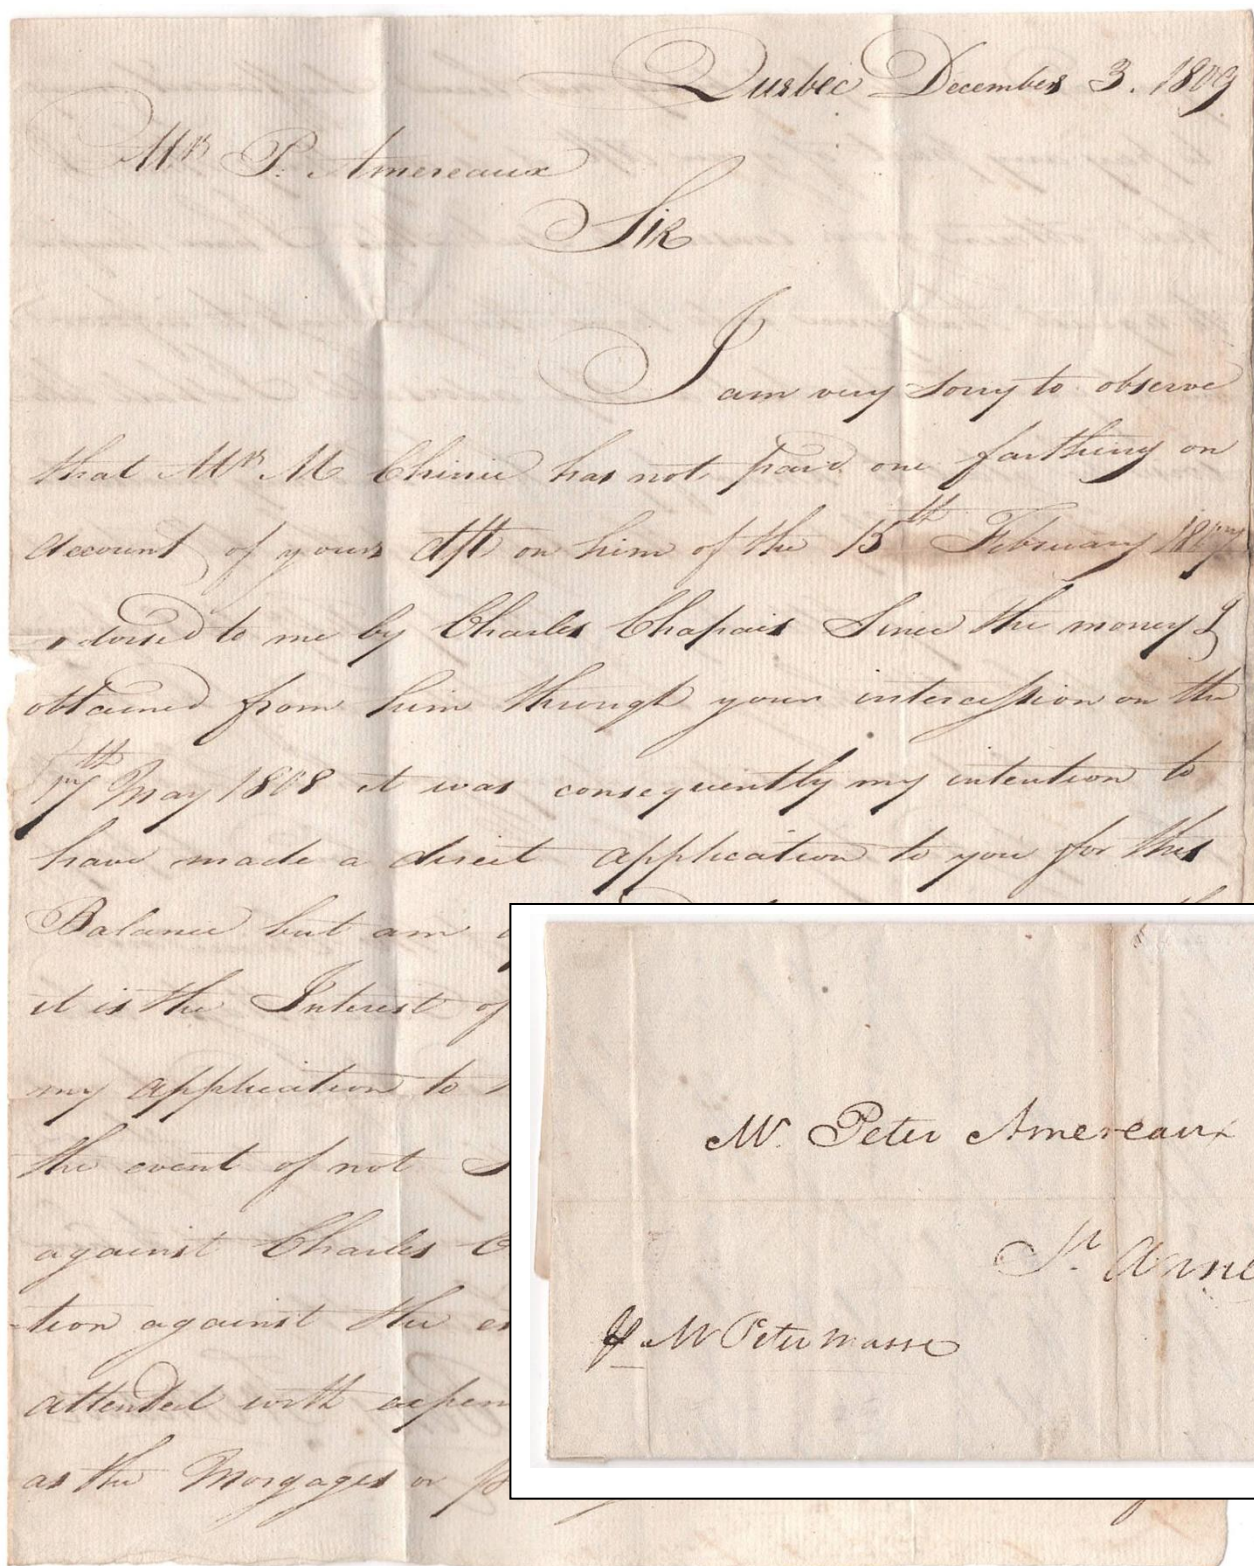 Quebec December 3. 1809
Mr. P. Amereaux
Sir
I am very sorry to observe
that Mr. M Chinic has not paid one farthing on
account of yours dft on him of the 15th February 1807
dorsed to me by Charles Chapais Since the money I
obtained from him through your intercession on the
17th May 1808 it was consequently my intention to
have made a direct application to you for this
Balance but am
it is the Interest of
my application to
the event of not
against Charles
-tion against the
attended with expen
as the Morgages or
Mr. Peter Amereaux
St. Anne
Mr Peter Masse